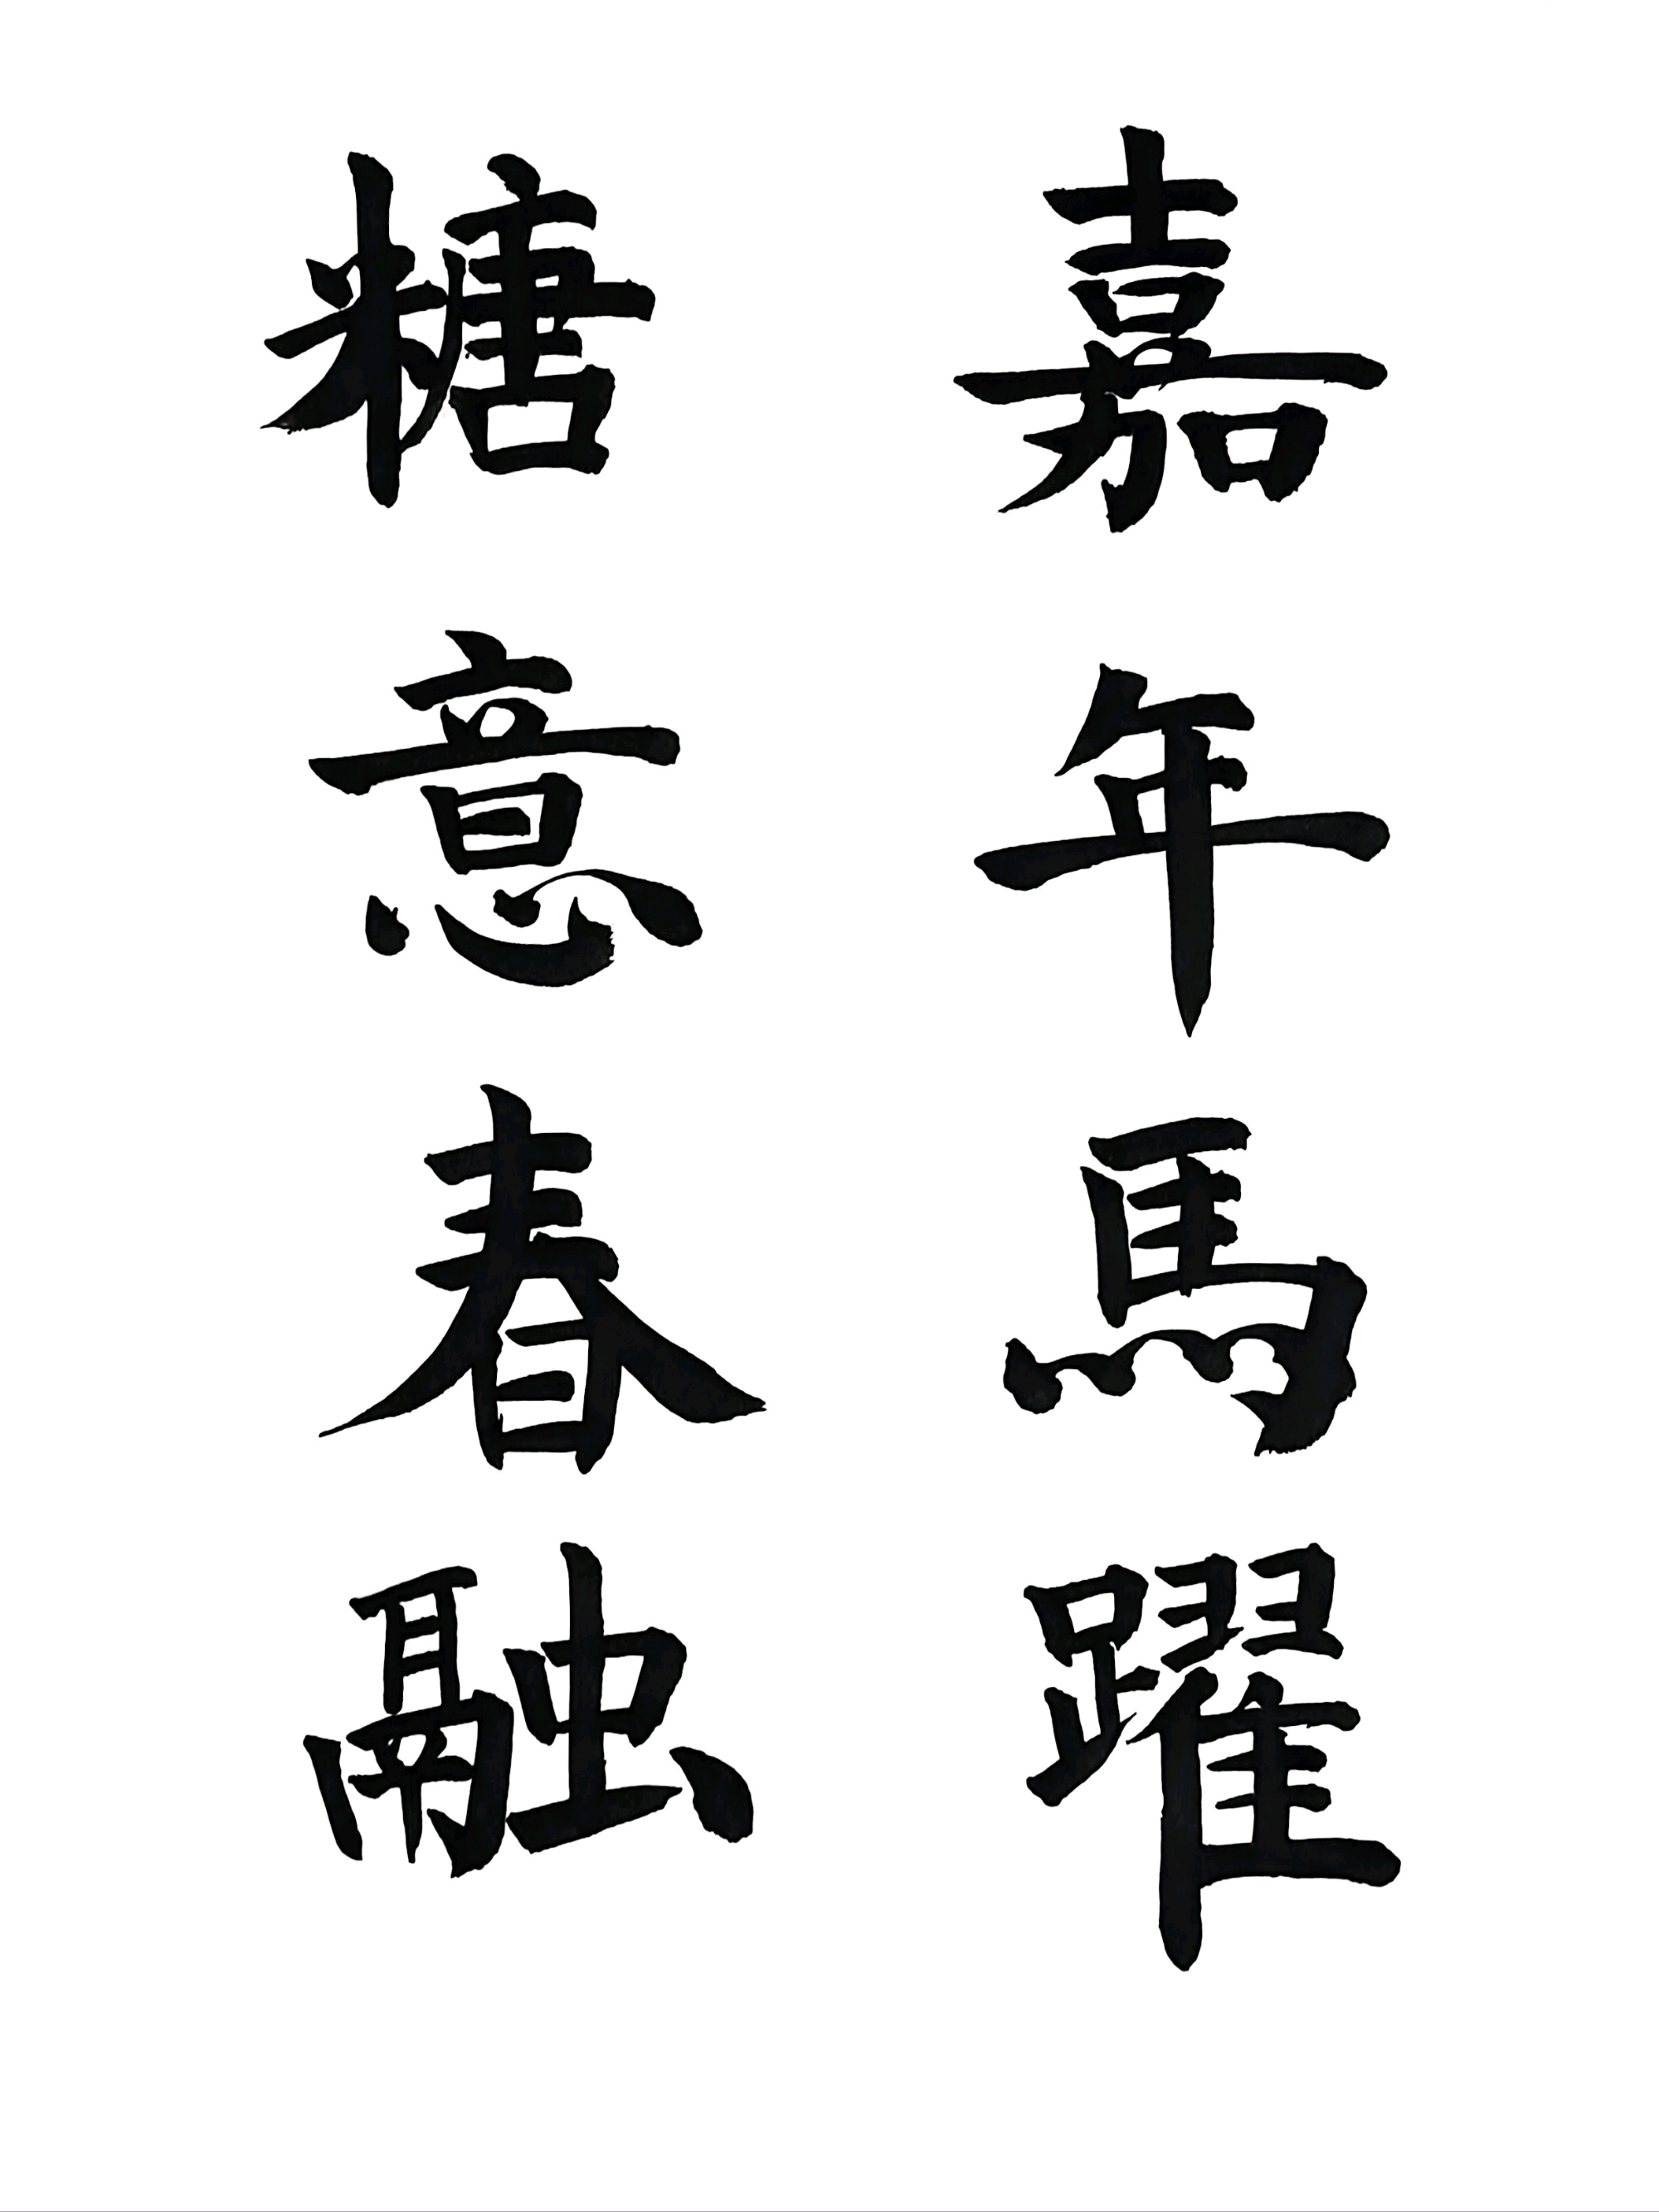 嘉年馬躍
糖意春融